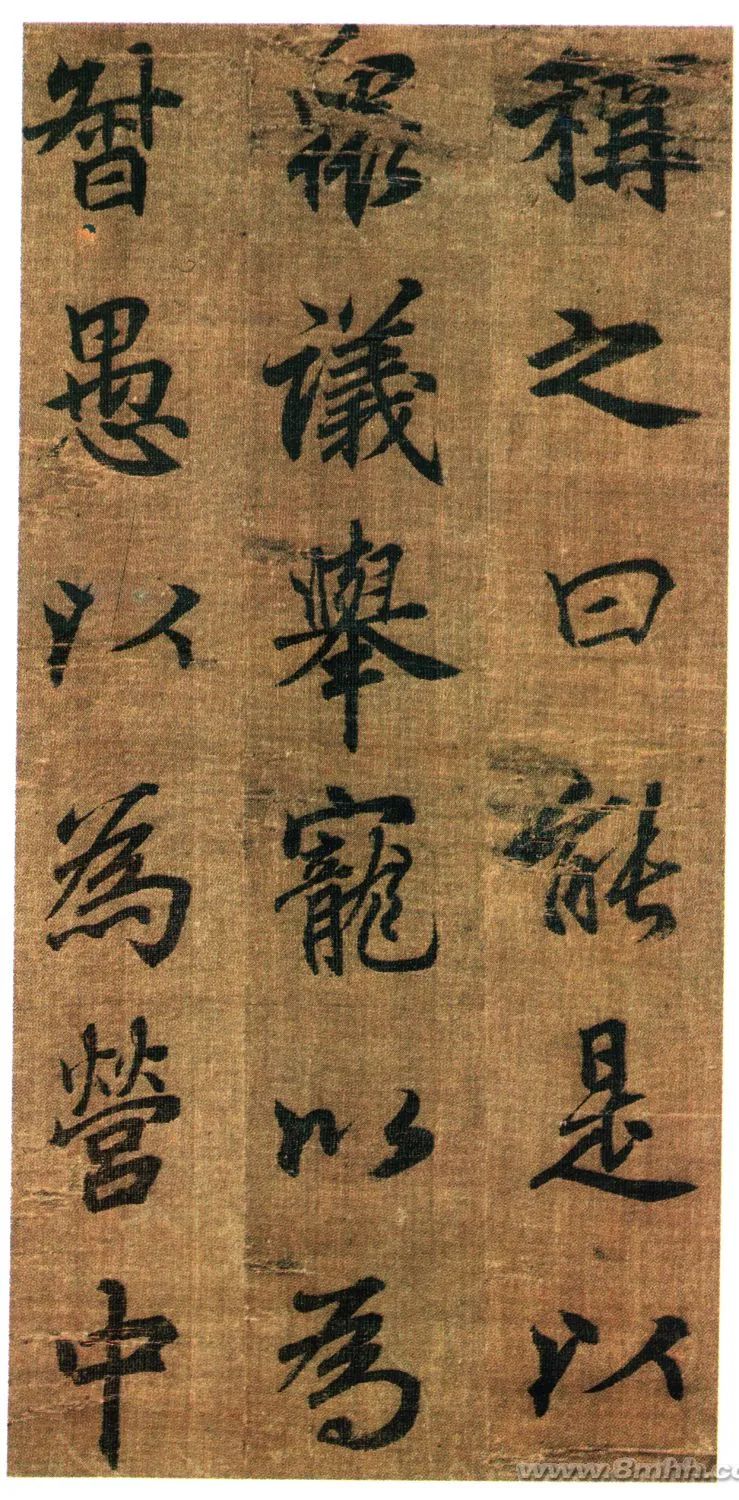 稱之曰能是以
衆議舉寵以為
督愚以為營中
www.8mhh.co